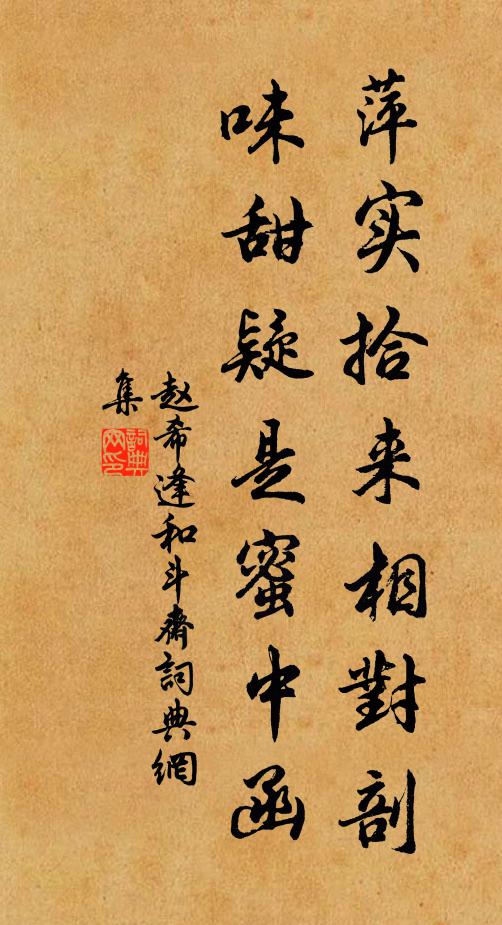 萍实拾来相對剖
味甜疑是蜜中函
赵希逢和斗齋詞典網
集
詞典
网印